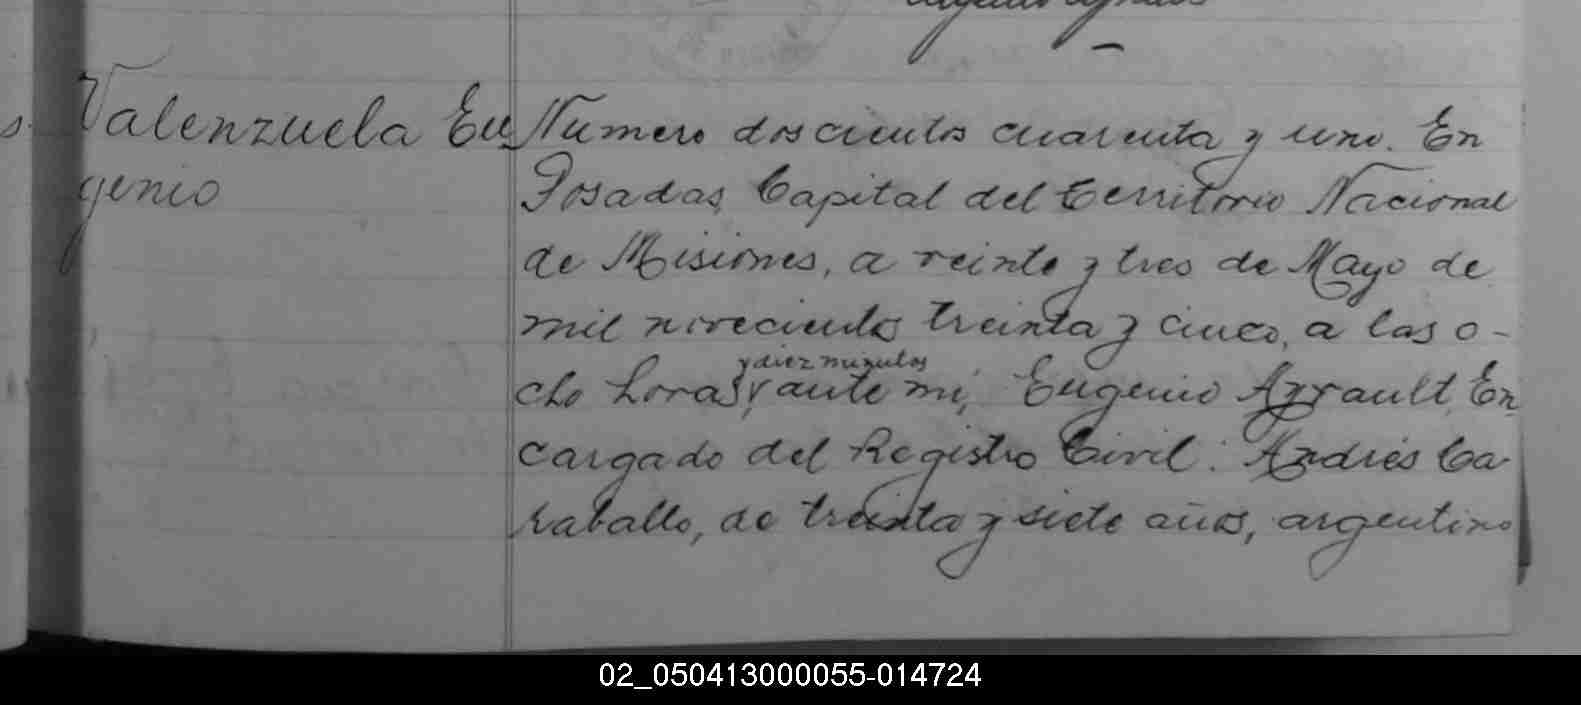 Valenzuela Eu
genio
Numero doscientos cuarenta y uno. En
Posadas, Capital del territorio Nacional
de Misiones, a veinte y tres de Mayo de
mil novecientos treinta y cinco, a las o-
y diez minutos
cho horas, ante mi, Eugenio Azrault, En
cargado del Registro Civil: Andrés Ca
raballo, de treinta y siete años, argentino
02_050413000055-014724